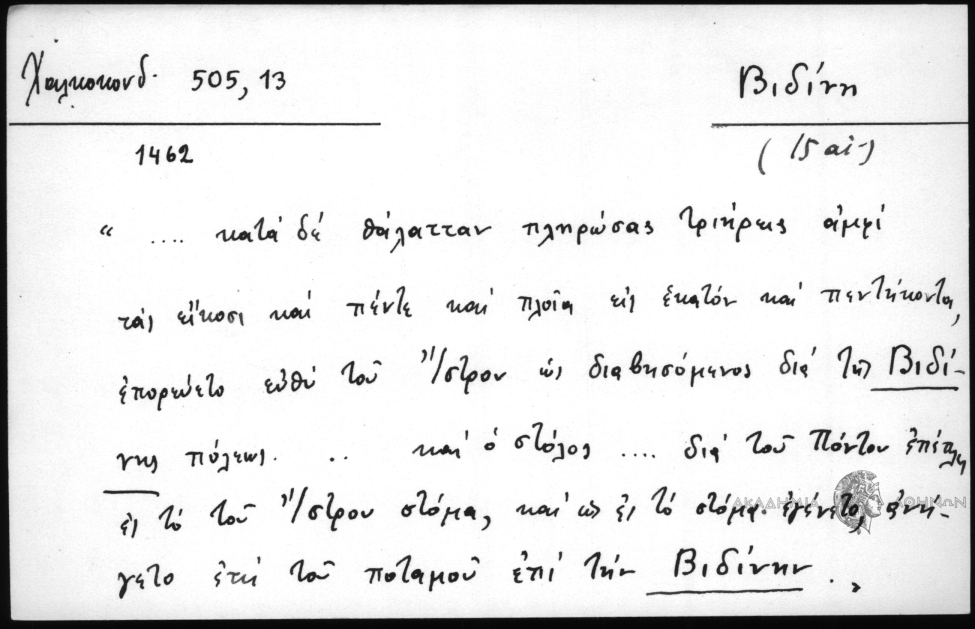 Χαλκοκονδ. 505, 13
Βιδίνη
1462
(15 αἰ-)
“ .... κατά δέ θάλατταν πληρώσας τριήρεις ἀμφί
τάς εἴκοσι καί πέντε καί πλοῖα εἰς ἑκατόν καί πεντήκοντα,
ἐπορεύετο εὐθύ τοῦ Ἴστρου ὡς διαβησόμενος διά τῆς Βιδί-
νης πόλεως. .. καί ὁ στόλος .... διά τοῦ Πόντου ἐπέπλει
ἐς τό τοῦ Ἴστρου στόμα, καί ὡς ἐς τό στόμα ἐγένετο, ἀνή-
γετο ἐπί τοῦ ποταμοῦ ἐπί τήν Βιδίνην.,
ΑΚΑΔΗΜΙΑ ΑΘΗΝΩΝ